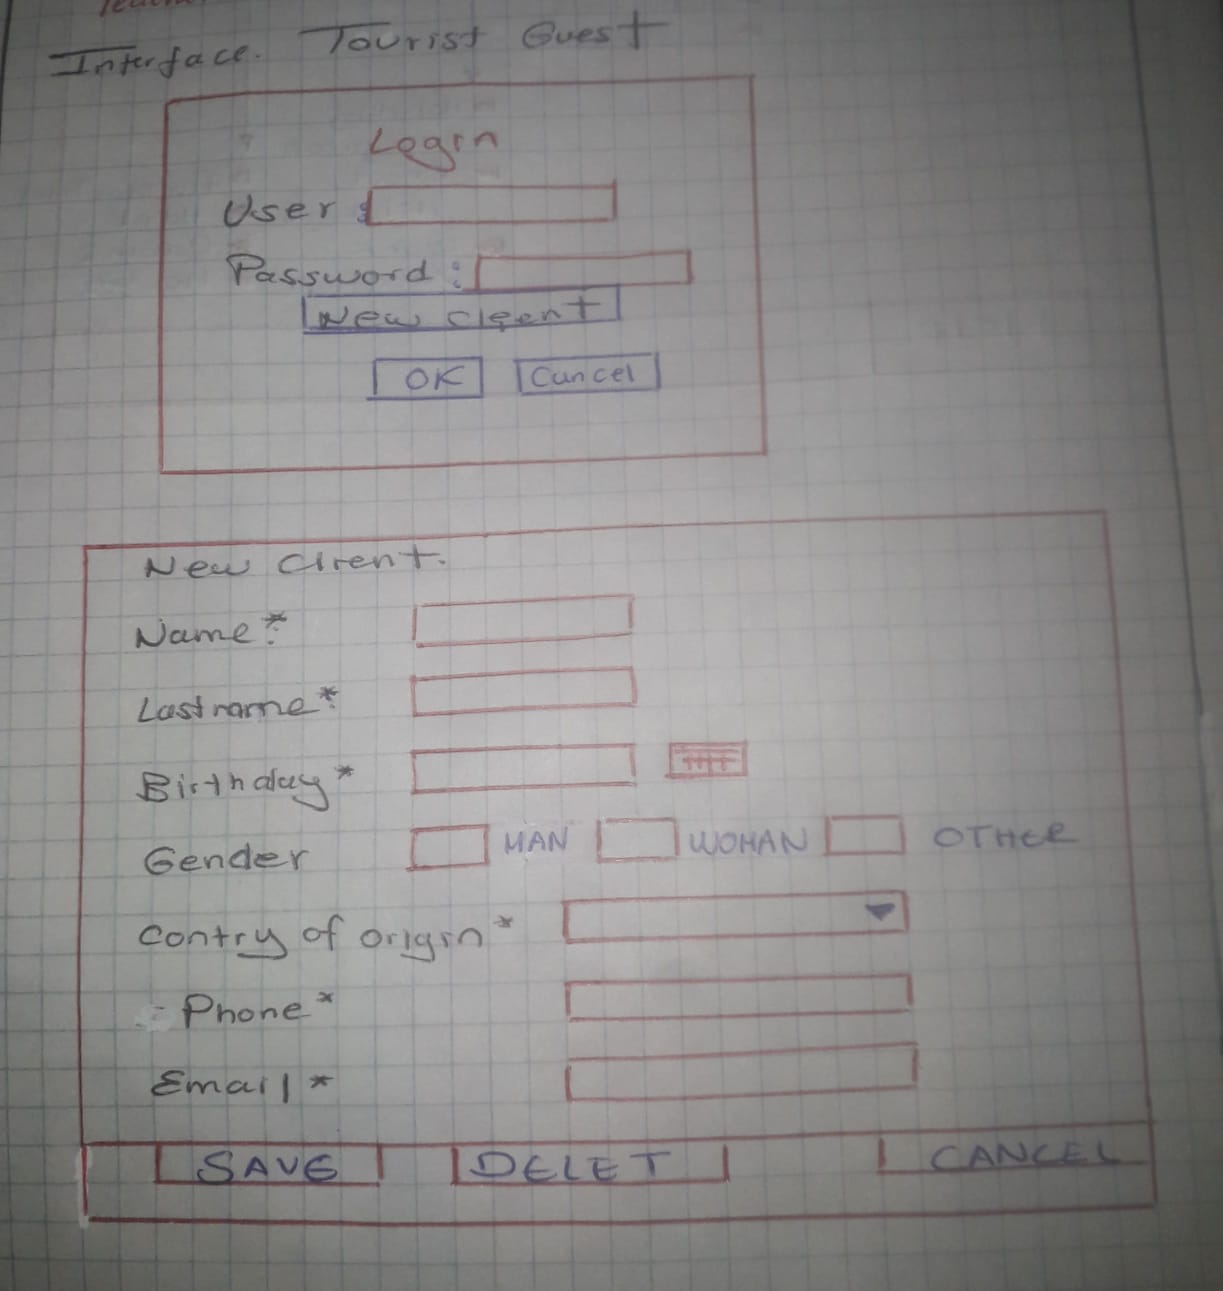 Interface. Tourist Guest
Login
User :
Password :
New client
OK Cancel
New Client.
Name*:
Lastname*:
Birthday*
Gender MAN WOMAN OTHER
Contry of origin*
Phone*
Email*
SAVE DELET CANCEL